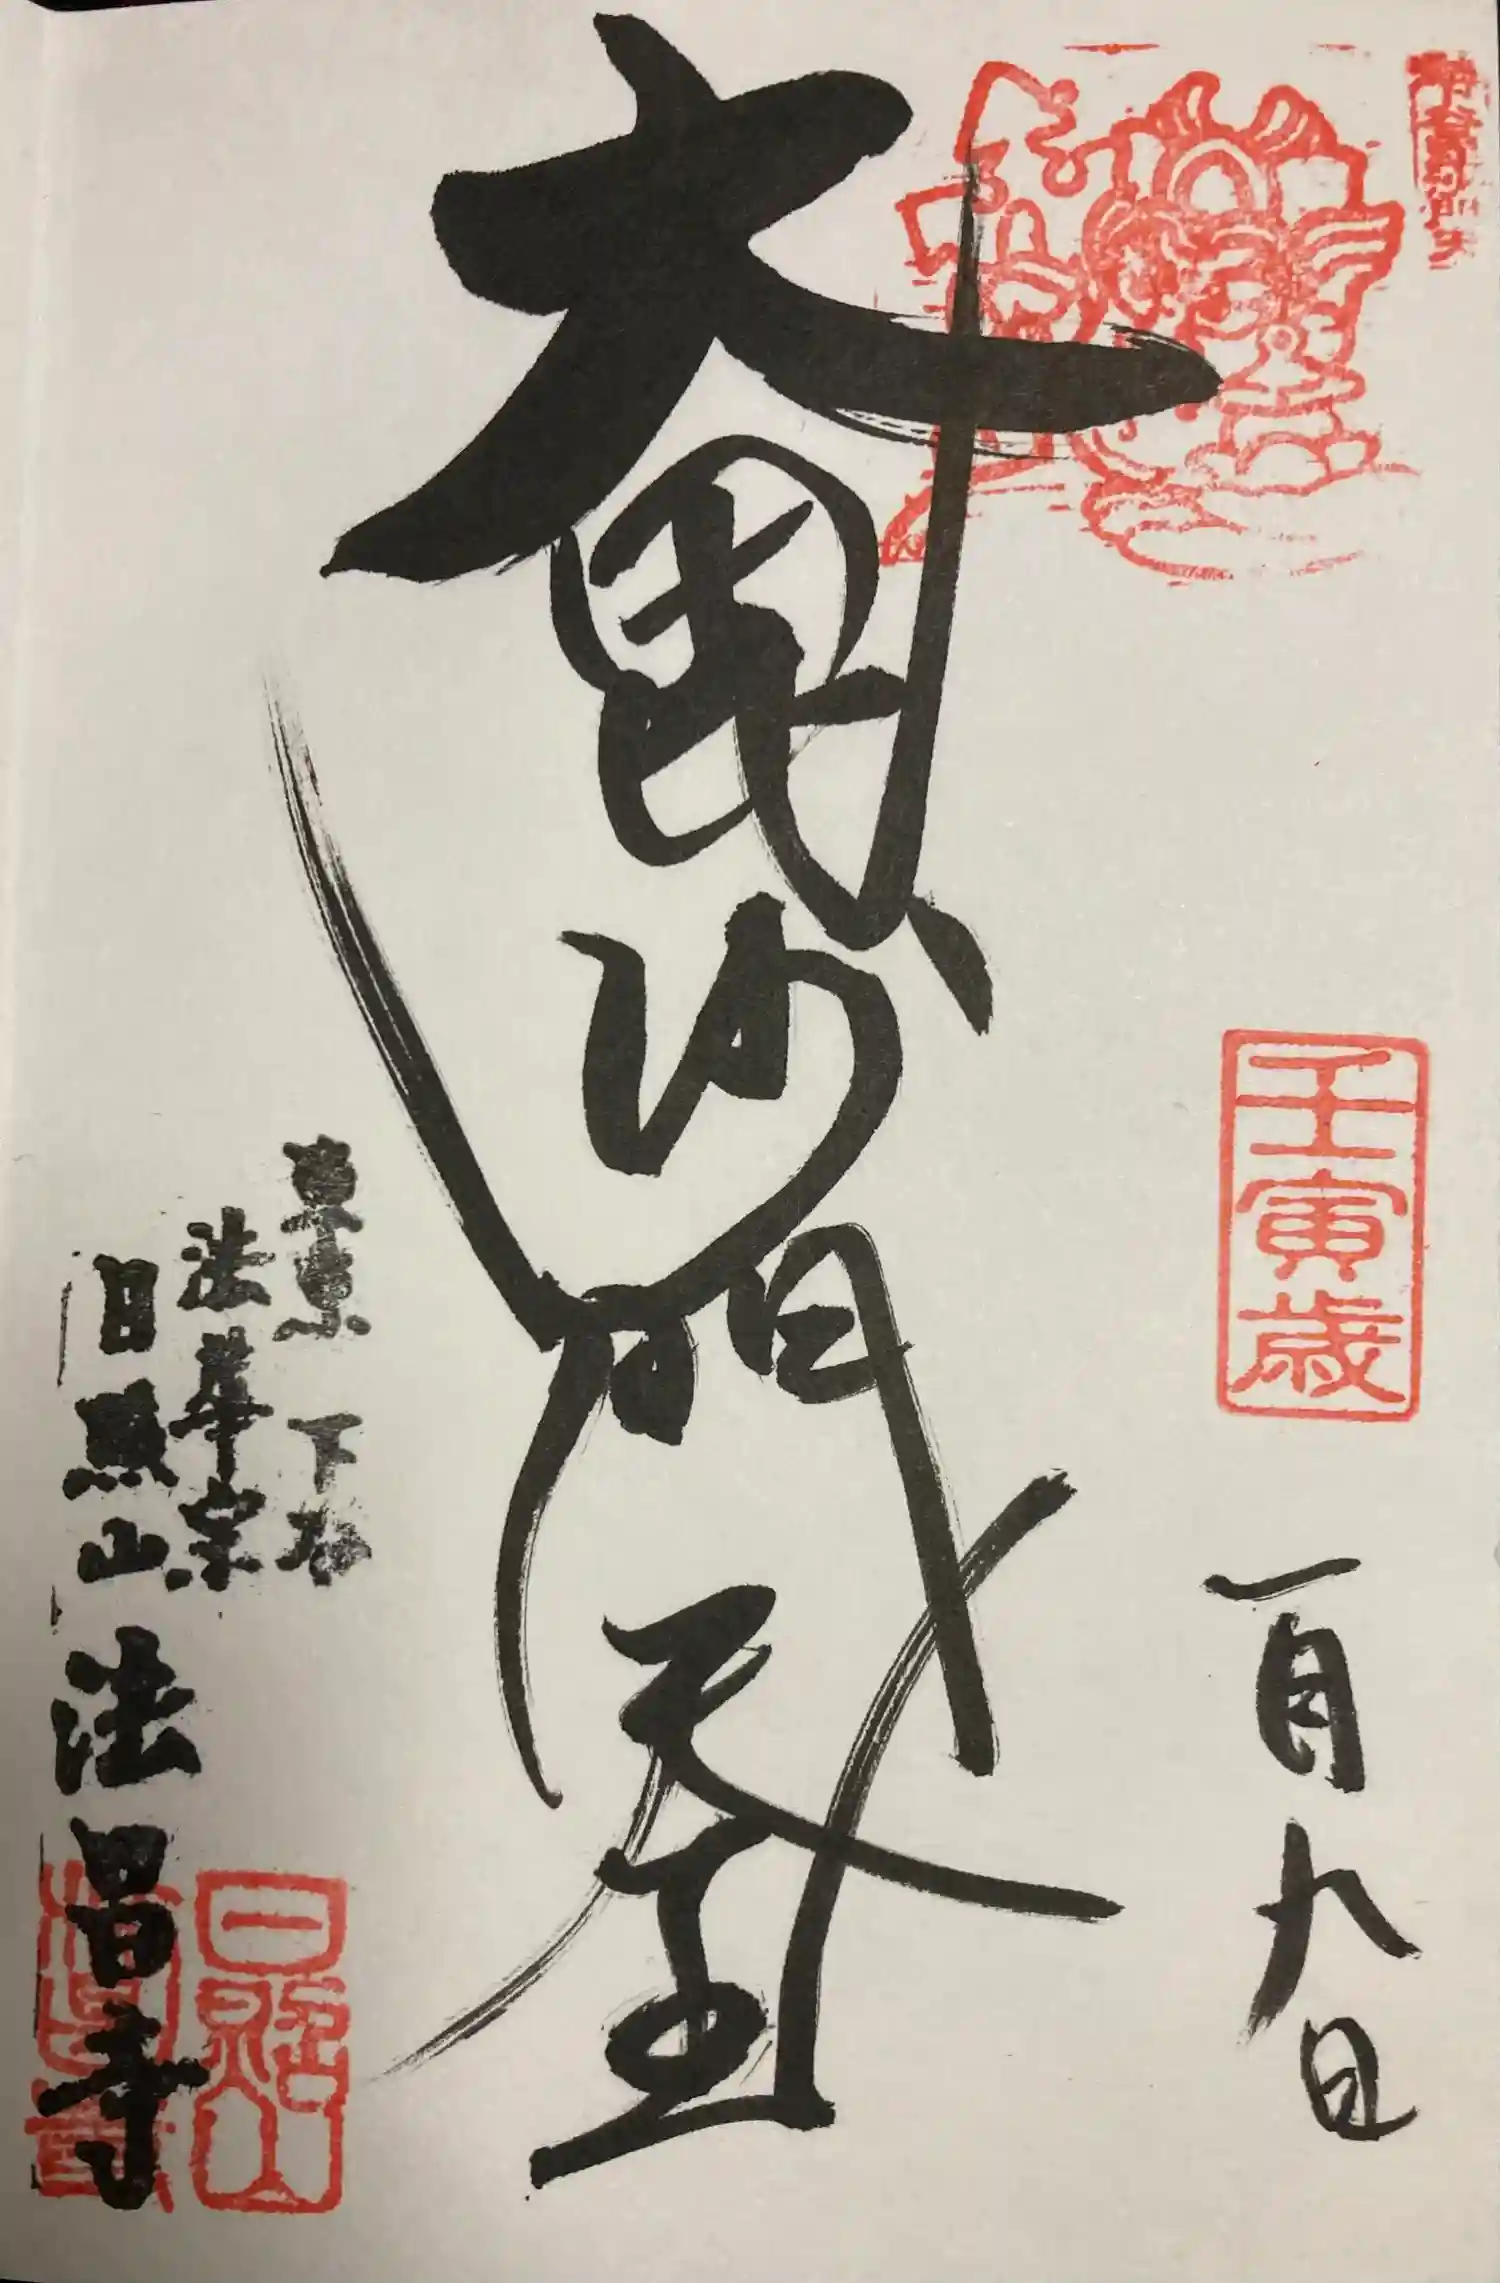 壬寅歳
一月九日
大毘沙門天王
東京 下谷
法華宗
日照山 法昌寺
日照山